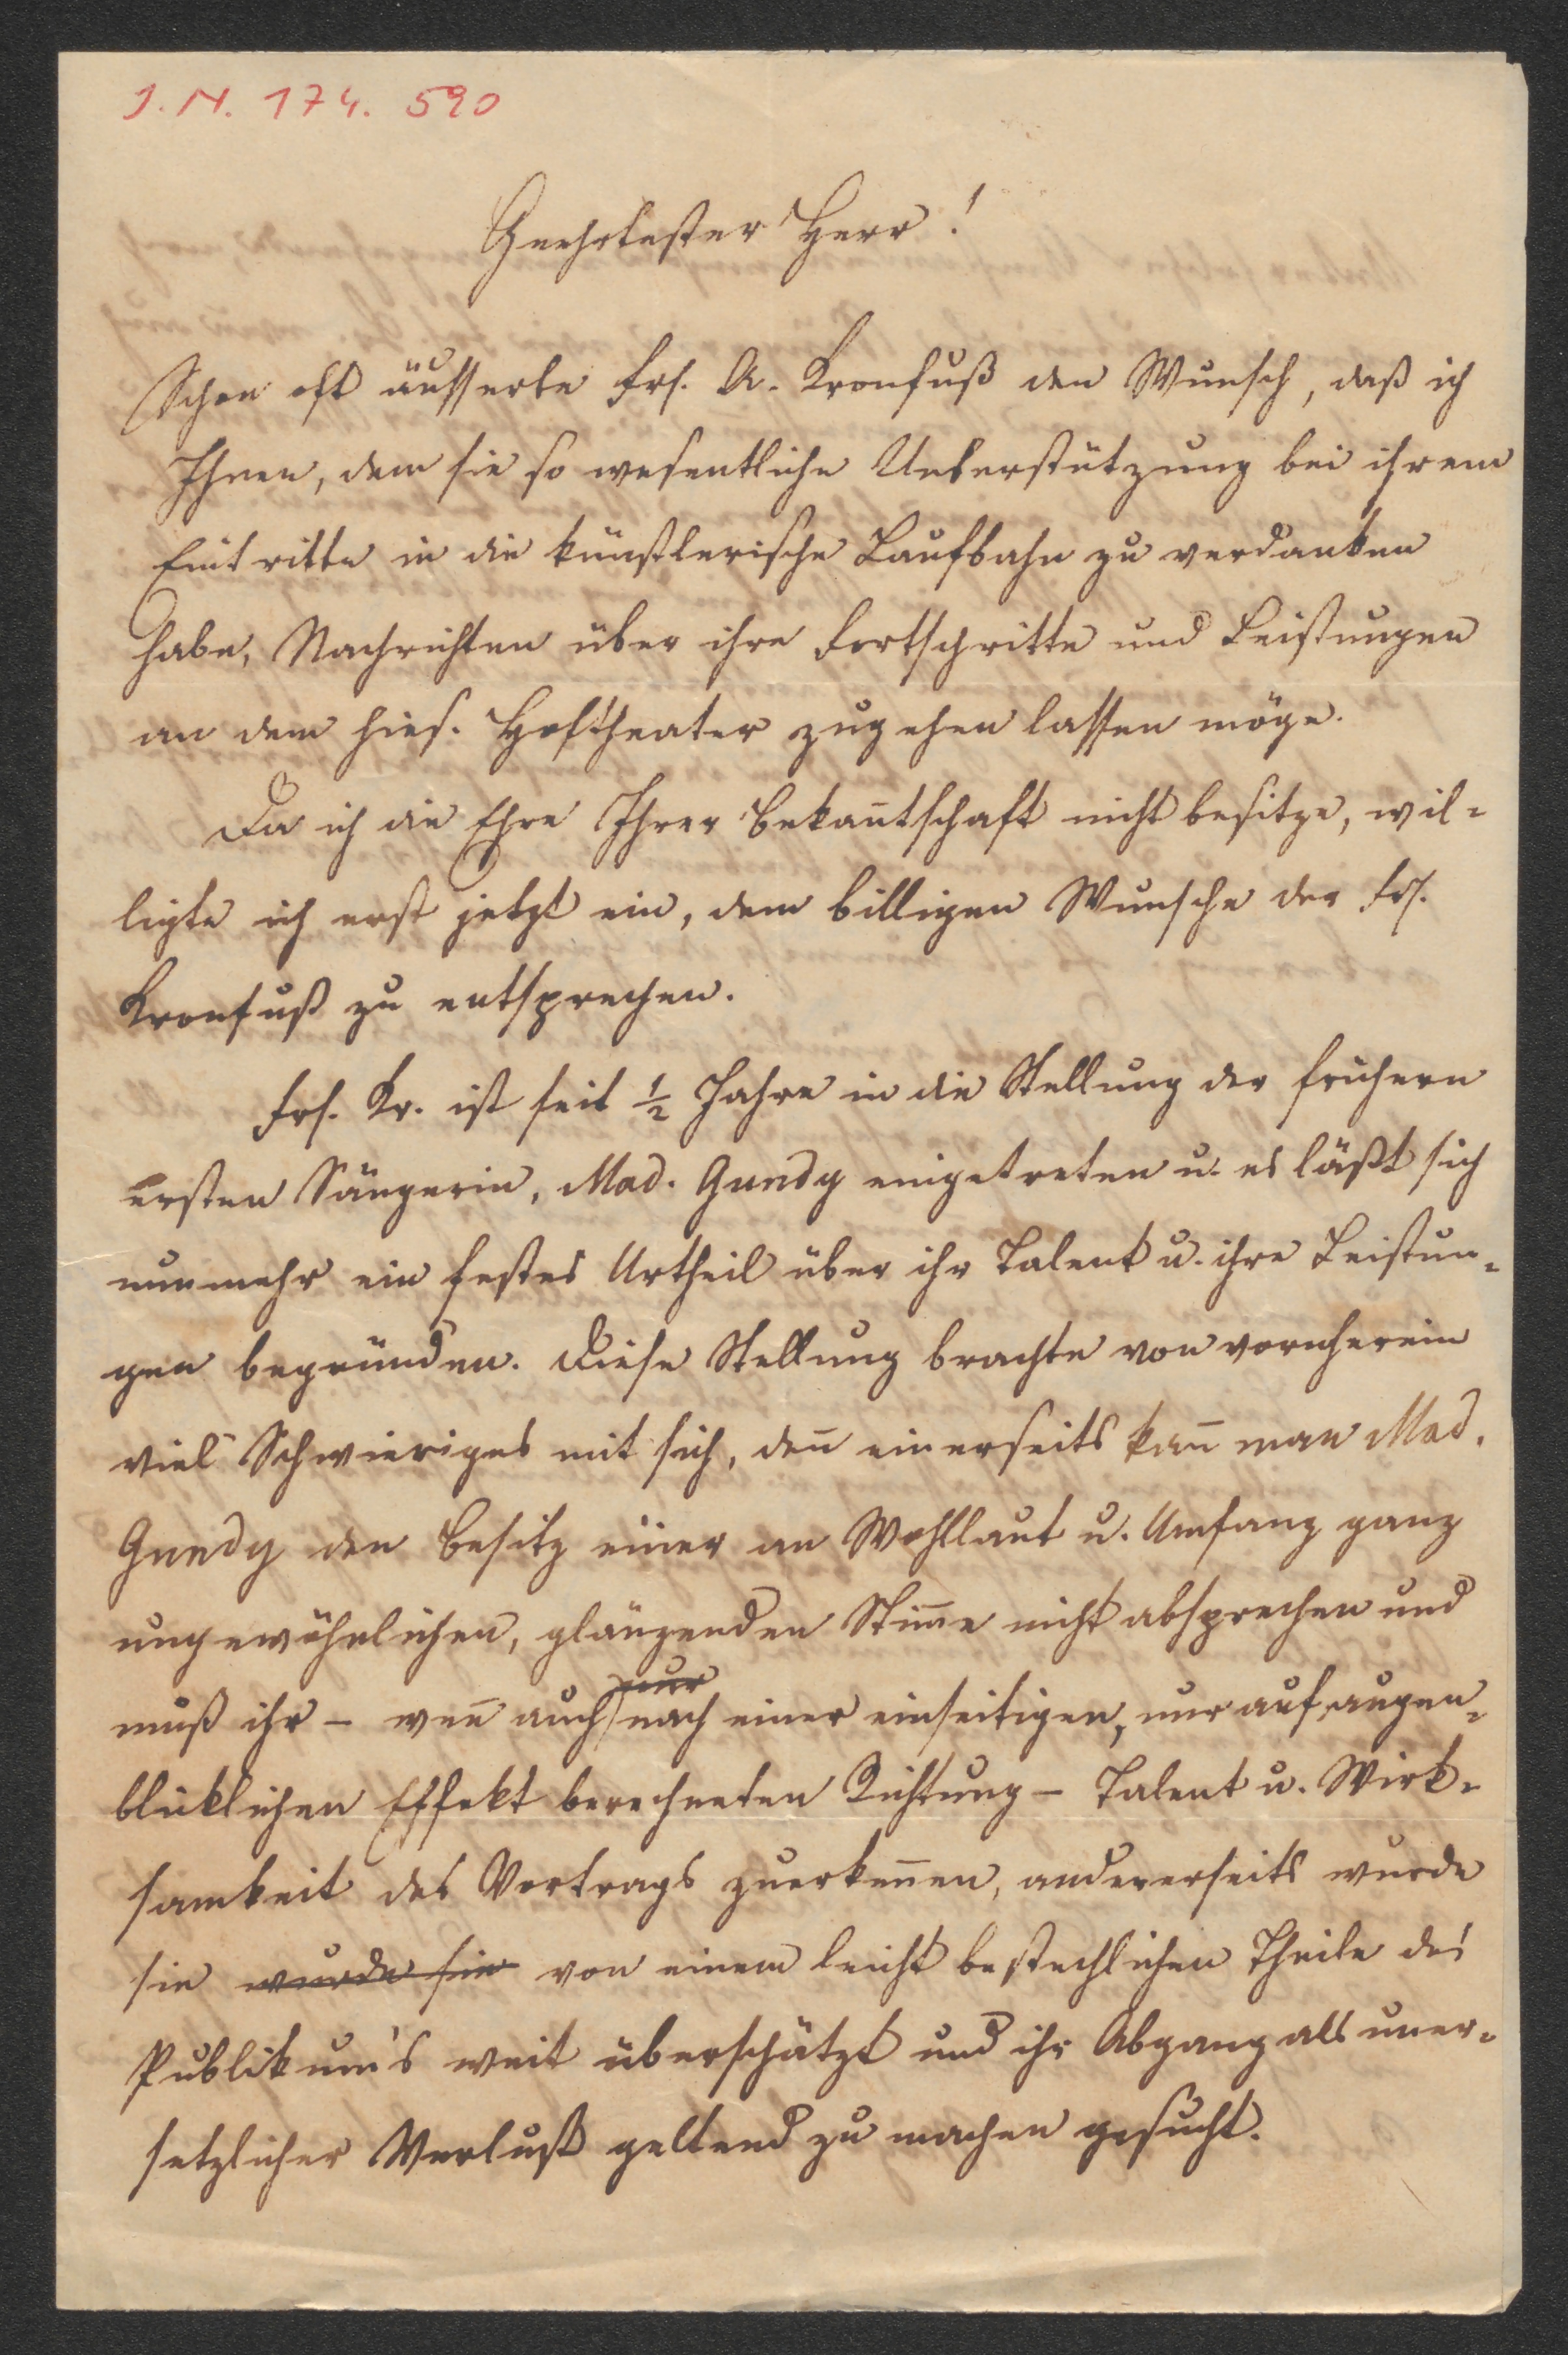 J. N. 174. 590
Geehrtester Herr!
Schon oft äusserte Frl. A. Kronfuß den Wunsch, daß ich
Ihnen, dem sie so wesentliche Unterstützung bei ihrem
Eintritte in die künstlerische Laufbahn zu verdanken
habe, Nachrichten über ihre Fortschritte und Leistungen
an dem hies. Hoftheater zugehen lassen möge.
Da ich die Ehre Ihrer Bekan̄tschaft nicht besitze, wil-
ligte ich erst jetzt ein, dem billigen Wunsche der Frl.
Kronfuß zu entsprechen.
Frl. Kr. ist seit ½ Jahre in die Stellung der frühern
ersten Sängerin, Mad. Gundy eingetreten u. es läßt sich
nunmehr ein festes Urtheil über ihr Talent u. ihre Leistun-
gen begründen. Diese Stellung brachte von vornherein
viel Schwieriges mit sich, den̄ einerseits kan̄ man Mad.
Gundy den Besitz einer an Wohllaut u. Umfang ganz
ungewöhnlichen, glänzenden Stim̄e nicht absprechen und
nur
muß ihr – wen̄ auch nach einer einseitigen, nur auf augen-
blicklichen Effekt berechneten Richtung – Talent u. Wirk-
samkeit des Vortrags zuerken̄en, andererseits wurde
sie wurde sie von einem leicht bestechlichen Theile des
Publikum's weit überschätzt und ihr Abgang als uner-
setzlicher Verlust geltend zu machen gesucht.